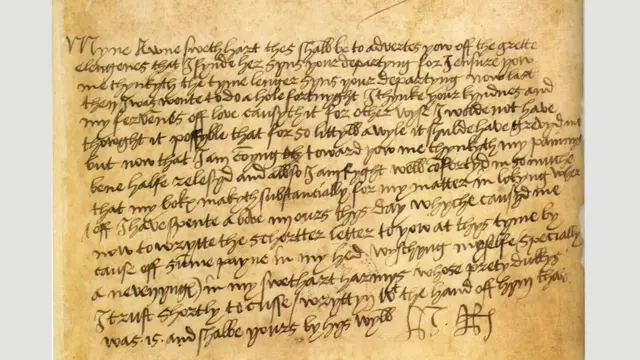 Myne awne swethart thes shall be to advertes yow off the grette
elengenes that I fynde her syns your departyng for I ensure yow
me thynkyth the tyme lenger syns your departyng now last
then I was wonte to do a hole fortnyght I thynke your kyndnes and
my fervens off love causyth it for other wyse I wolde not have
thowght it possyble that for so littyll a wyle it shulde have grevyd me
but now that I am comyng toward yow me thynkyth my paynnys
bene halfe relesyd and allso I am ryght well cofortyd in so muche
that my boke makyth substancially for my matter in lokyng wher
off I have spente a bove iiii ours thys day whyche causyd me
now to wrytte the schortter letter to yow at thys tyme by
cause off summe payne in my hed wyschyng my selfe specially
a nevennyng in my swethart harmys whose prety dukkys
I trust shortly to cusse wryttyn w the hand off hym that
was .is. and shalbe yours by hys wyll
H R